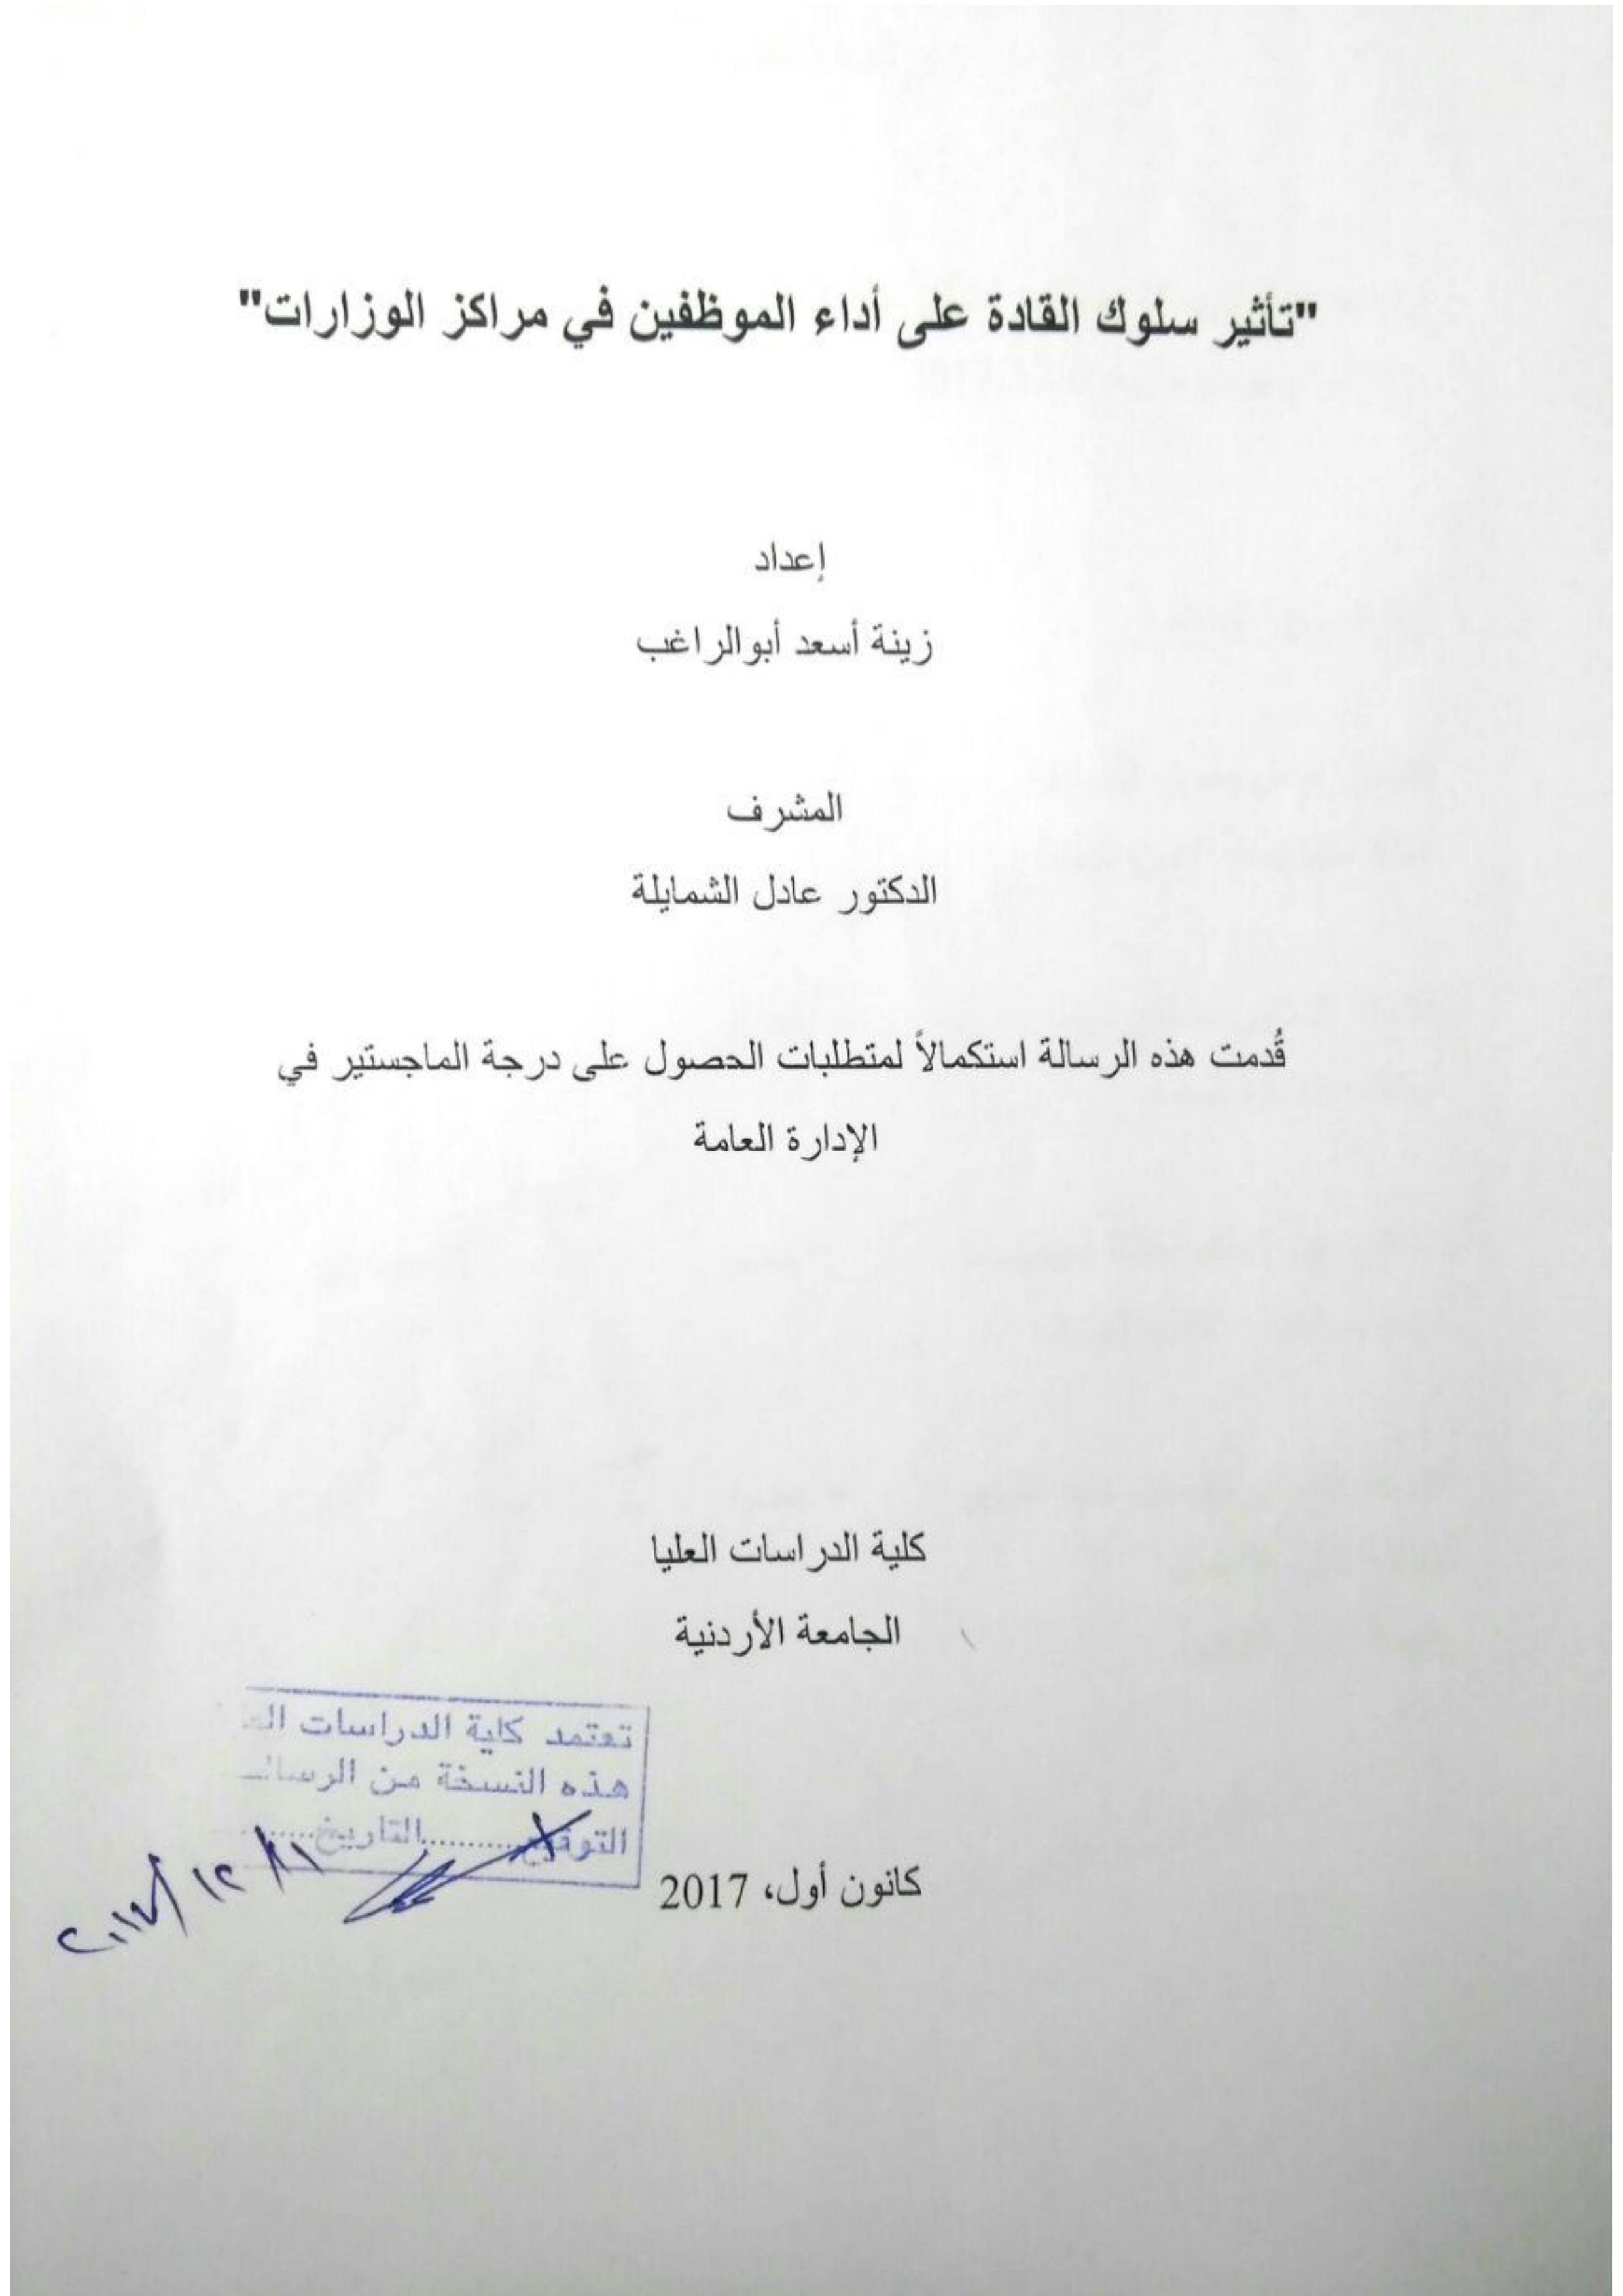 "تأثير سلوك القادة على أداء الموظفين في مراكز الوزارات"
إعداد
زينة أسعد أبوالراغب
المشرف
الدكتور عادل الشمايلة
قُدمت هذه الرسالة استكمالاً لمتطلبات الحصول على درجة الماجستير في
الإدارة العامة
كلية الدراسات العليا
الجامعة الأردنية
تعتمد كلية الدراسات
هذه النسخة من
التوقيع............التاريخ.........
كانون أول، 2017